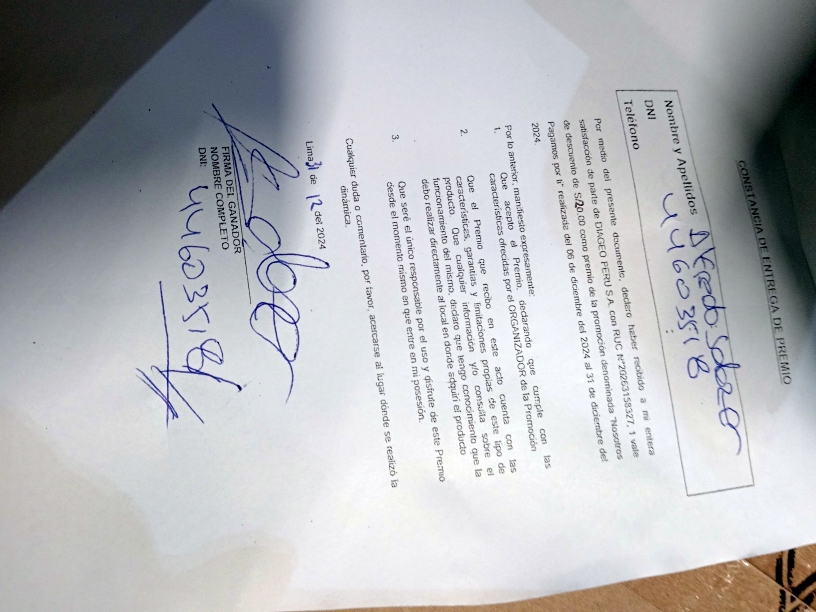 CONSTANCIA DE ENTREGA DE PREMIO
Nombre y Apellidos Alfredo Salazar
DNI 44603518
Teléfono
Por medio del presente documento, declaro haber recibido a mi entera
satisfacción de parte de DIAGEO PERU S.A. con RUC N°20263158327, 1 vale
de descuento de S/20.00 como premio de la promoción denominada "Nosotros
Pagamos por ti" realizada del 06 de diciembre del 2024 al 31 de diciembre del
2024.
Por lo anterior, manifiesto expresamente:
1. Que acepto el Premio, declarando que cumple con las
características ofrecidas por el ORGANIZADOR de la Promoción
2. Que el Premio que recibo en este acto cuenta con las
características, garantías y limitaciones propias de este tipo de
producto. Que cualquier información y/o consulta sobre el
funcionamiento del mismo, declaro que tengo conocimiento que la
debo realizar directamente al local en donde adquirí el producto
3. Que seré el único responsable por el uso y disfrute de este Premio
desde el momento mismo en que entre en mi posesión.
Cualquier duda o comentario, por favor, acercarse al lugar dónde se realizó la
dinámica.
Lima 31 de 12 del 2024
FIRMA DEL GANADOR
NOMBRE COMPLETO
DNI: 44603518